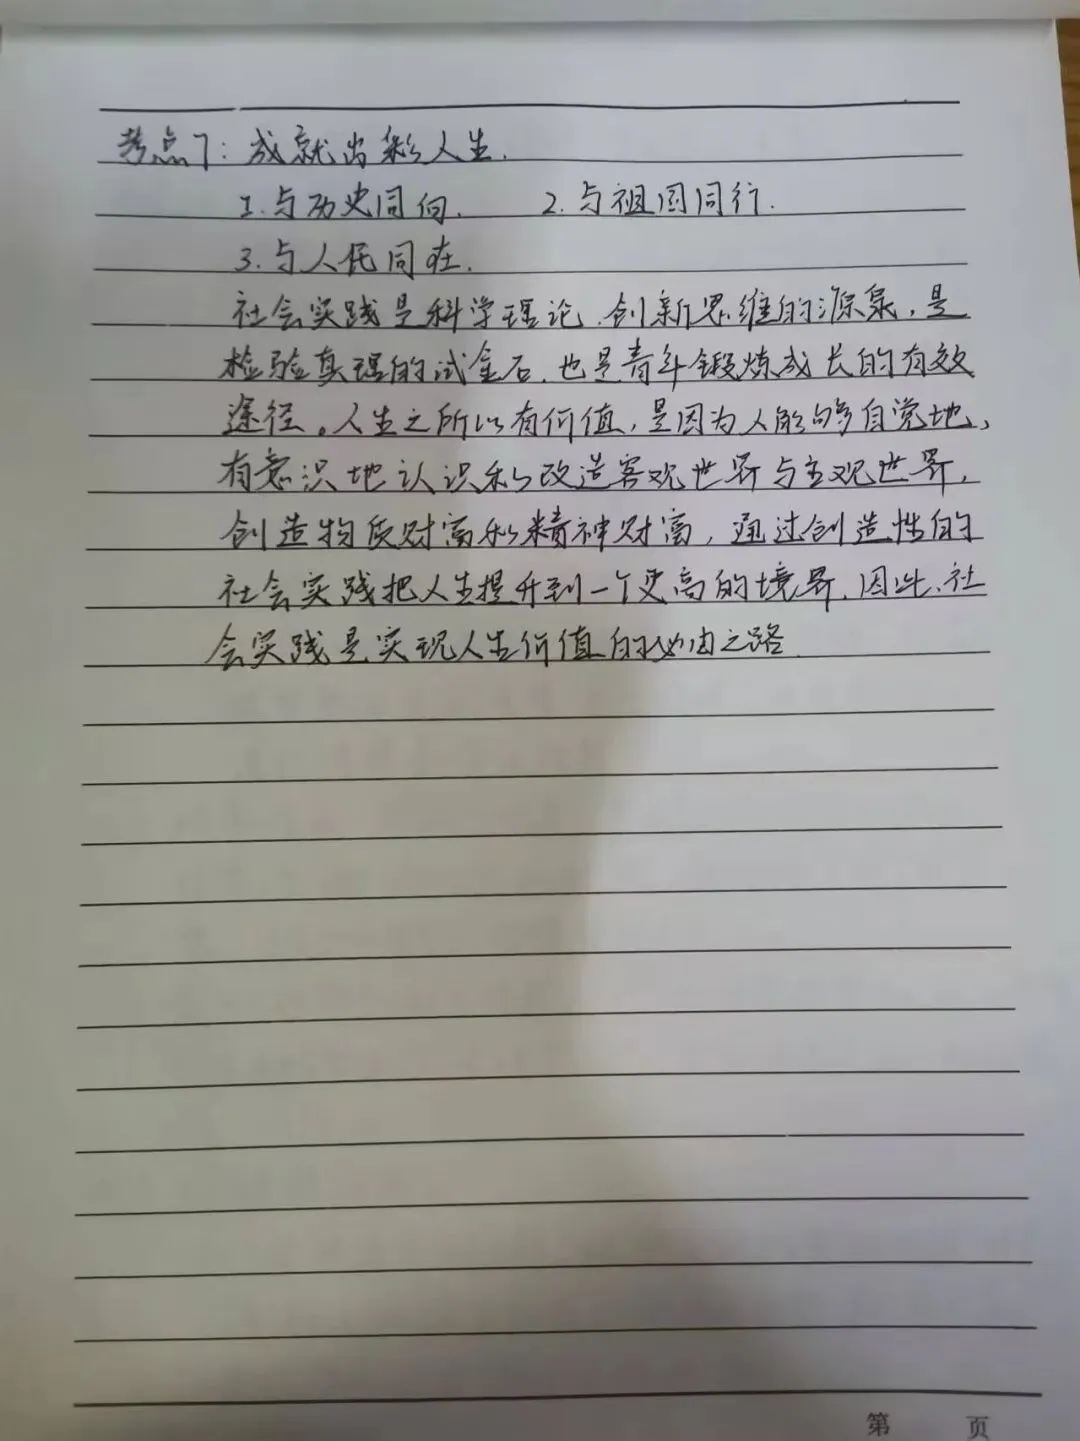 考点7：成就出彩人生.
1.与历史同向. 2.与祖国同行.
3.与人民同在.
社会实践是科学理论、创新思维的源泉，是
检验真理的试金石，也是青年锻炼成长的有效
途径。人生之所以有价值，是因为人能够自觉地、
有意识地认识和改造客观世界与主观世界，
创造物质财富和精神财富，通过创造性的
社会实践把人生提升到一个更高的境界.因此,社
会实践是实现人生价值的必由之路.
第 页